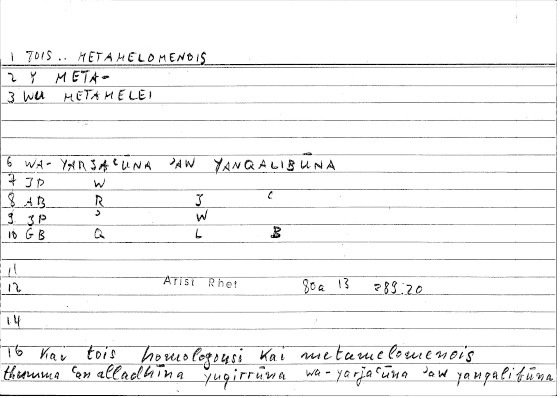 1 TOIS .. METAMELOMENOIS
2 Y META-
3 WU METAMELEI
6 WA-YARJAʿŪNA ʾAW YANQALIBŪNA
7 JP W
8 AB R J ʿ
9 JP ʾ W
10 GB Q L B
11
12 Arist Rhet 80a 13 =89.20
14
16 kai tois homologousi kai metamelomenois
thumma ʿan alladhīna yuqirrūna wa-yarjaʿūna ʾaw yanqalibūna